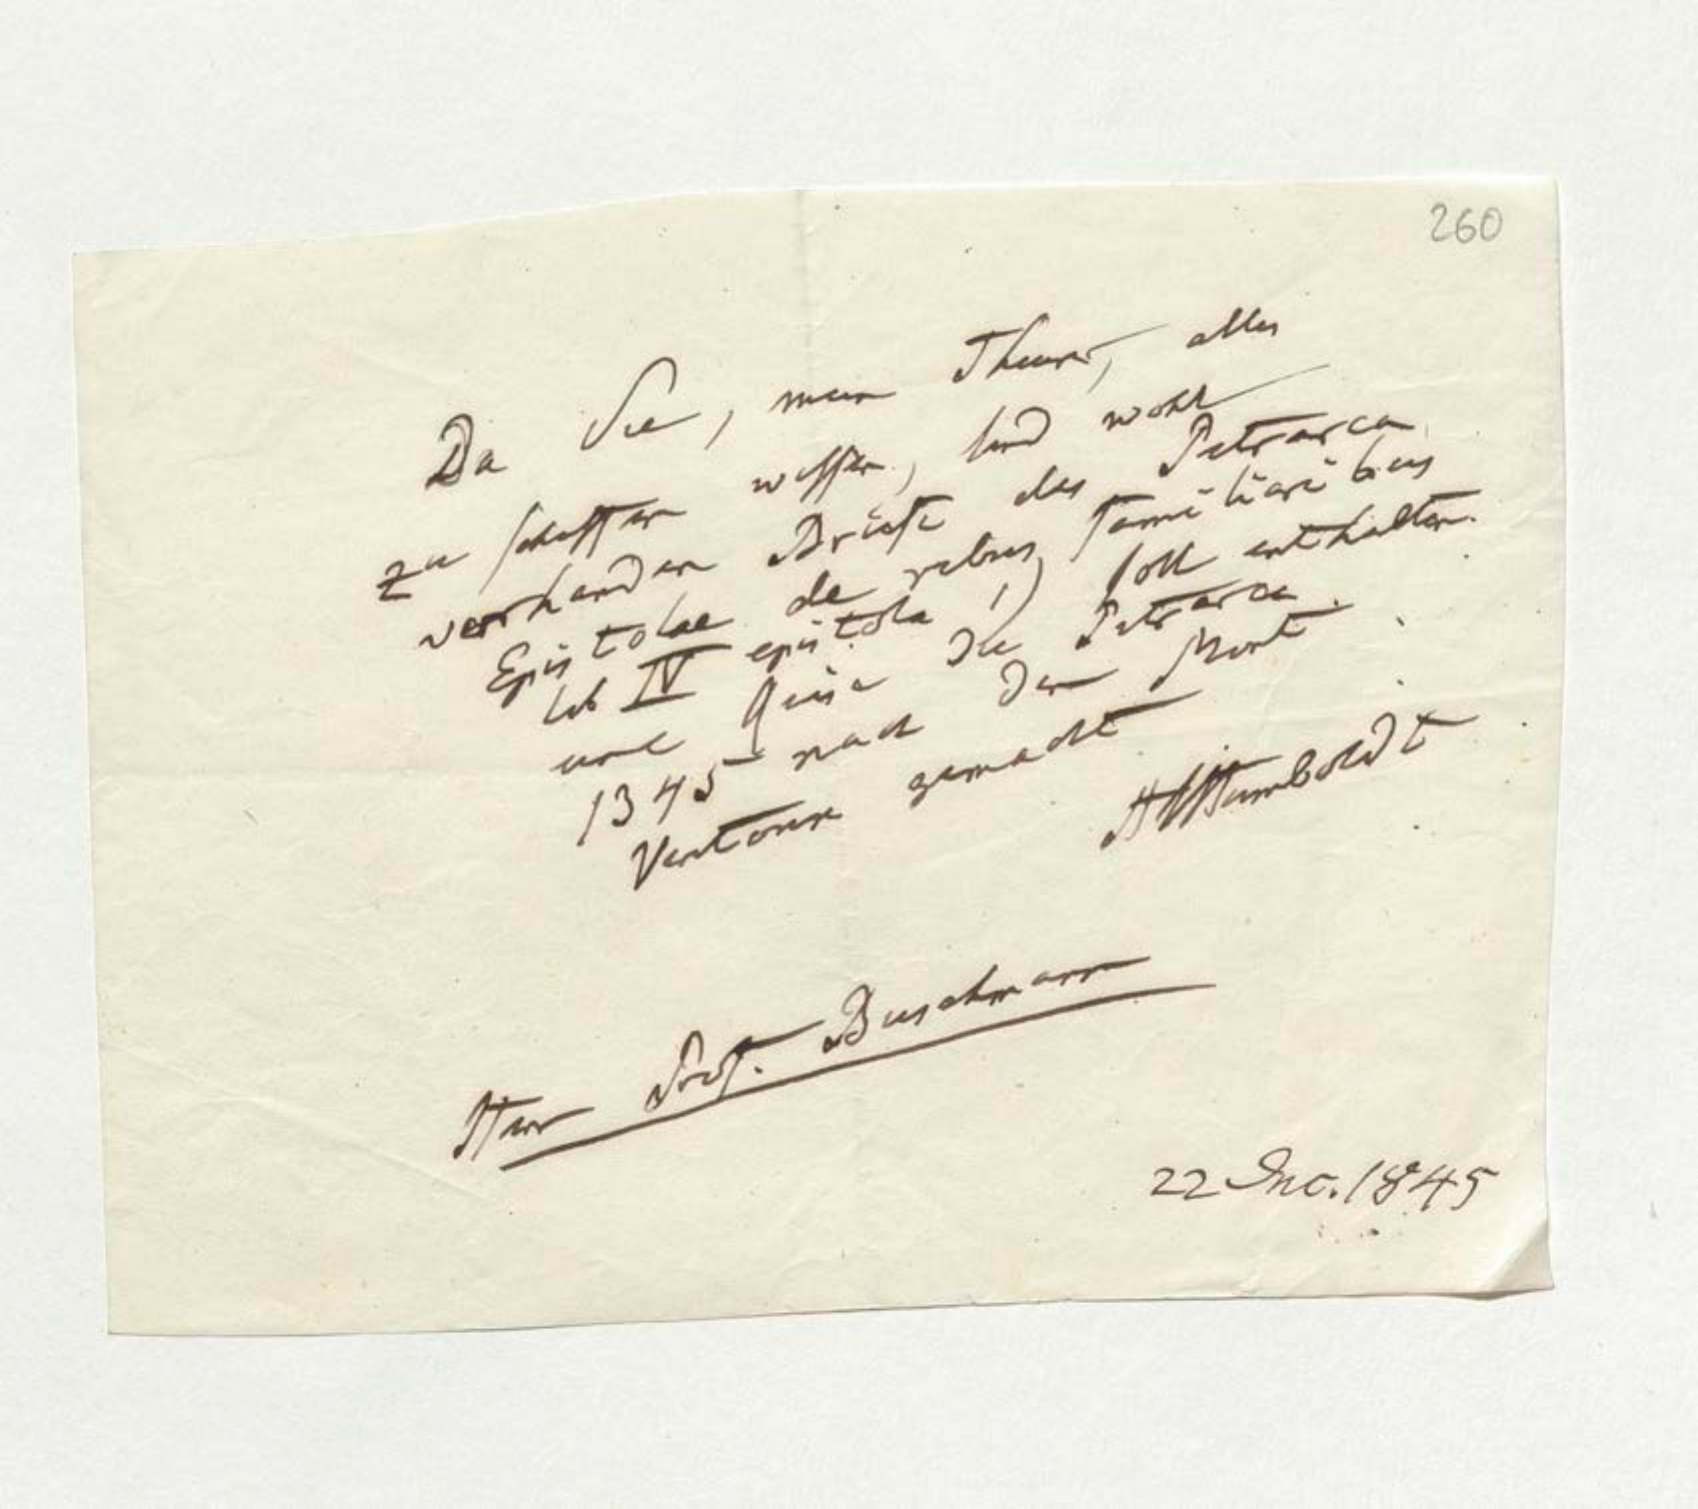 260
Da Sie, mein Theurer, alles
zu schaffen wissen, sind wohl
vorhanden Briefe des Petrarca
Epistolae de rebus familiaribus
lib IV epistola 1) soll enthalten
eine Reise die Petrarca
1345 nach dem Mont
Ventoux gemacht
AvHumboldt
Herr Prof. Buschmann
22 Dec. 1845